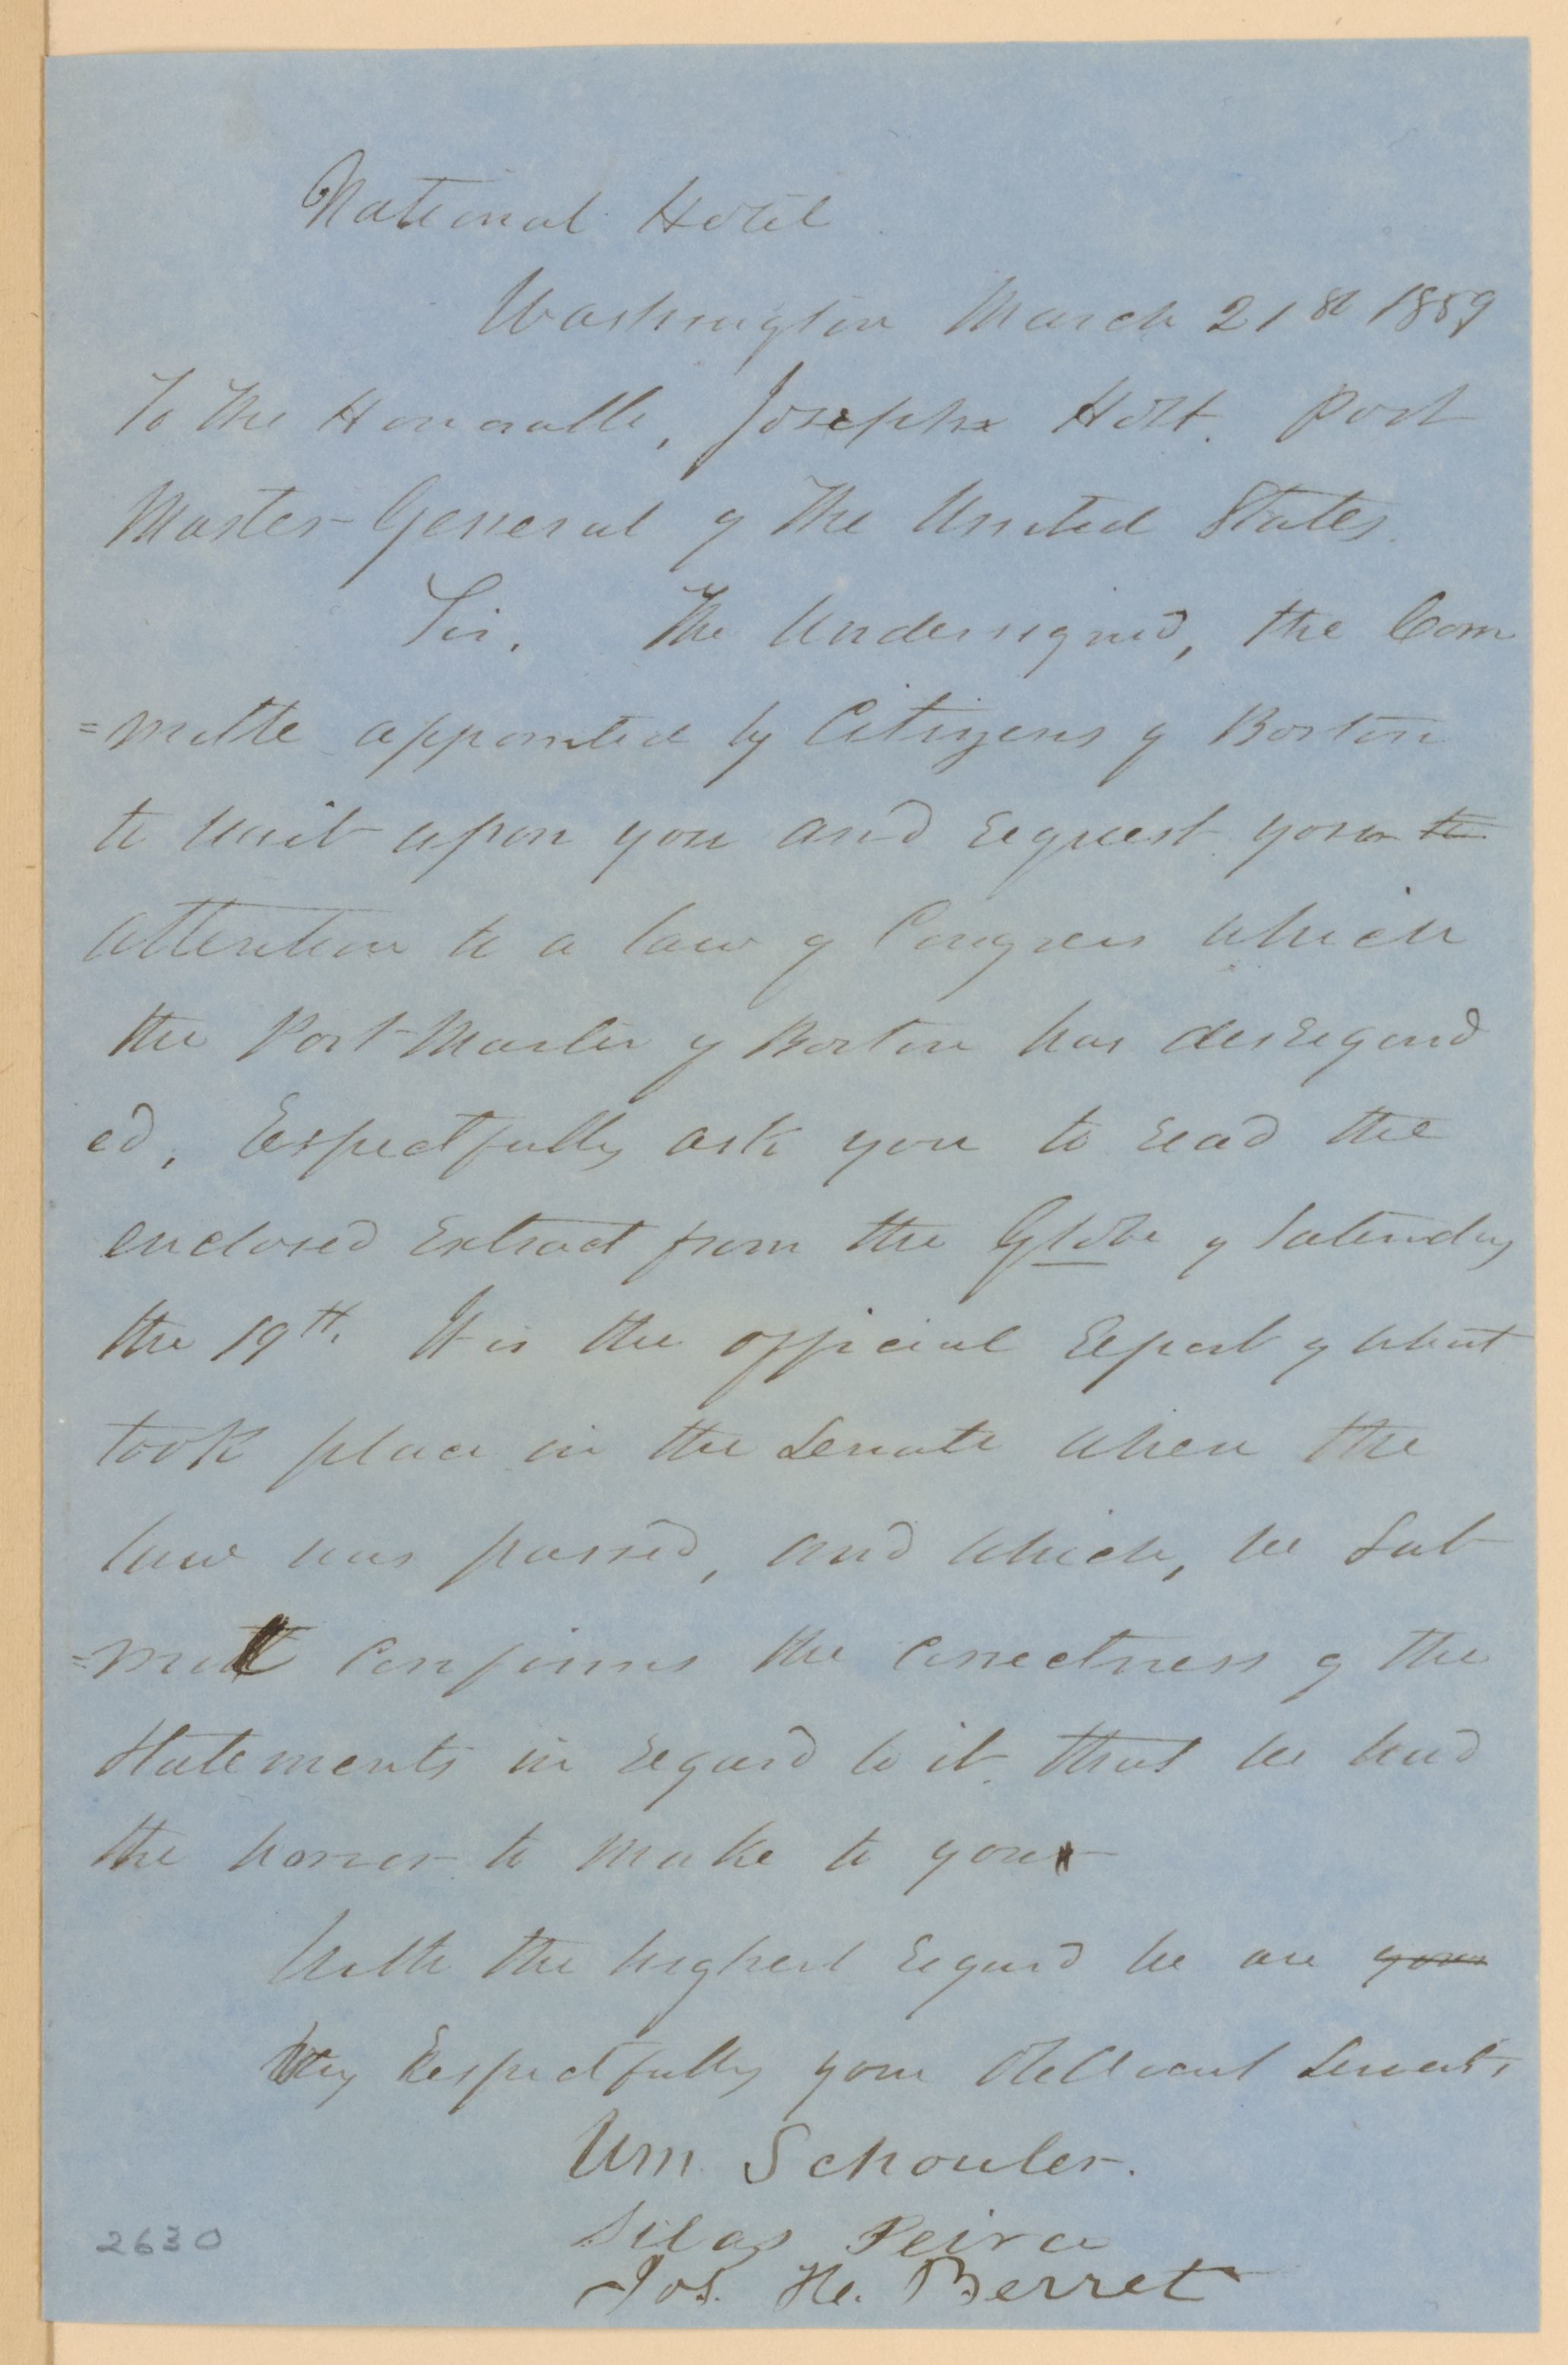 National Hotel
Washington March 21st 1859
To the Honorable, Joseph Holt. Post
Master-General of the United States.
Sir. The Undersigned, the Com
=mitte appointed by Citizens of Boston
to wait upon you and request your to
attention to a law of Congress which
the Post-Master of Boston has disregard
ed, respectfully ask you to read the
enclosed Extract from the Globe of Saturday
the 19th. It is the official Report of what
took place in the Senate when the
law was passed, and which, we sub
=mit confirms the correctness of the
statements in regard to it. that we had
the honor to make to you
With the highest regard we are your
Very Respectfully your Obedient Servants
Wm Schouler.
Silas Peirce
Jos. He. Berret
2630